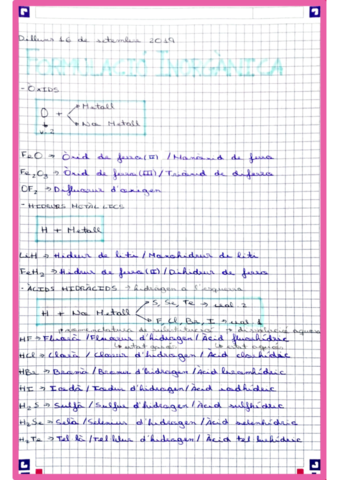 Dilluns 16 de setembre 2019
FORMULACIÓ INORGÀNICA
- ÒXIDS
O + Metall
No Metall
v. 2
FeO → Òxid de ferro (II) / Monòxid de ferro
Fe₂O₃ → Òxid de ferro (III) / Triòxid de diferro
OF₂ → Difluorur d'oxigen
- HIDRURS METÀL·LICS
H + Metall
LiH → Hidrur de liti / Monohidrur de liti
FeH₂ → Hidrur de ferro (II) / Dihidrur de ferro
- ÀCIDS HIDRÀCIDS → hidrogen a l'esquerra
H + No Metall
S, Se, Te → val 2
F, Cl, Br, I → val 1
nomenclatura de substitució
HF → Fluorà / Fluorur d'hidrogen / Àcid fluorhídric
HCl → Clorà / Clorur d'hidrogen / Àcid clorhídric
HBr → Bromà / Bromur d'hidrogen / Àcid bromhídric
HI → Iodà / Iodur d'hidrogen / Àcid iodhídric
H₂S → Sulfà / Sulfur d'hidrogen / Àcid sulfhídric
H₂Se → Selà / Selenur d'hidrogen / Àcid selenhídric
H₂Te → Tel·là / Tel·lur d'hidrogen / Àcid tel·lurhídric